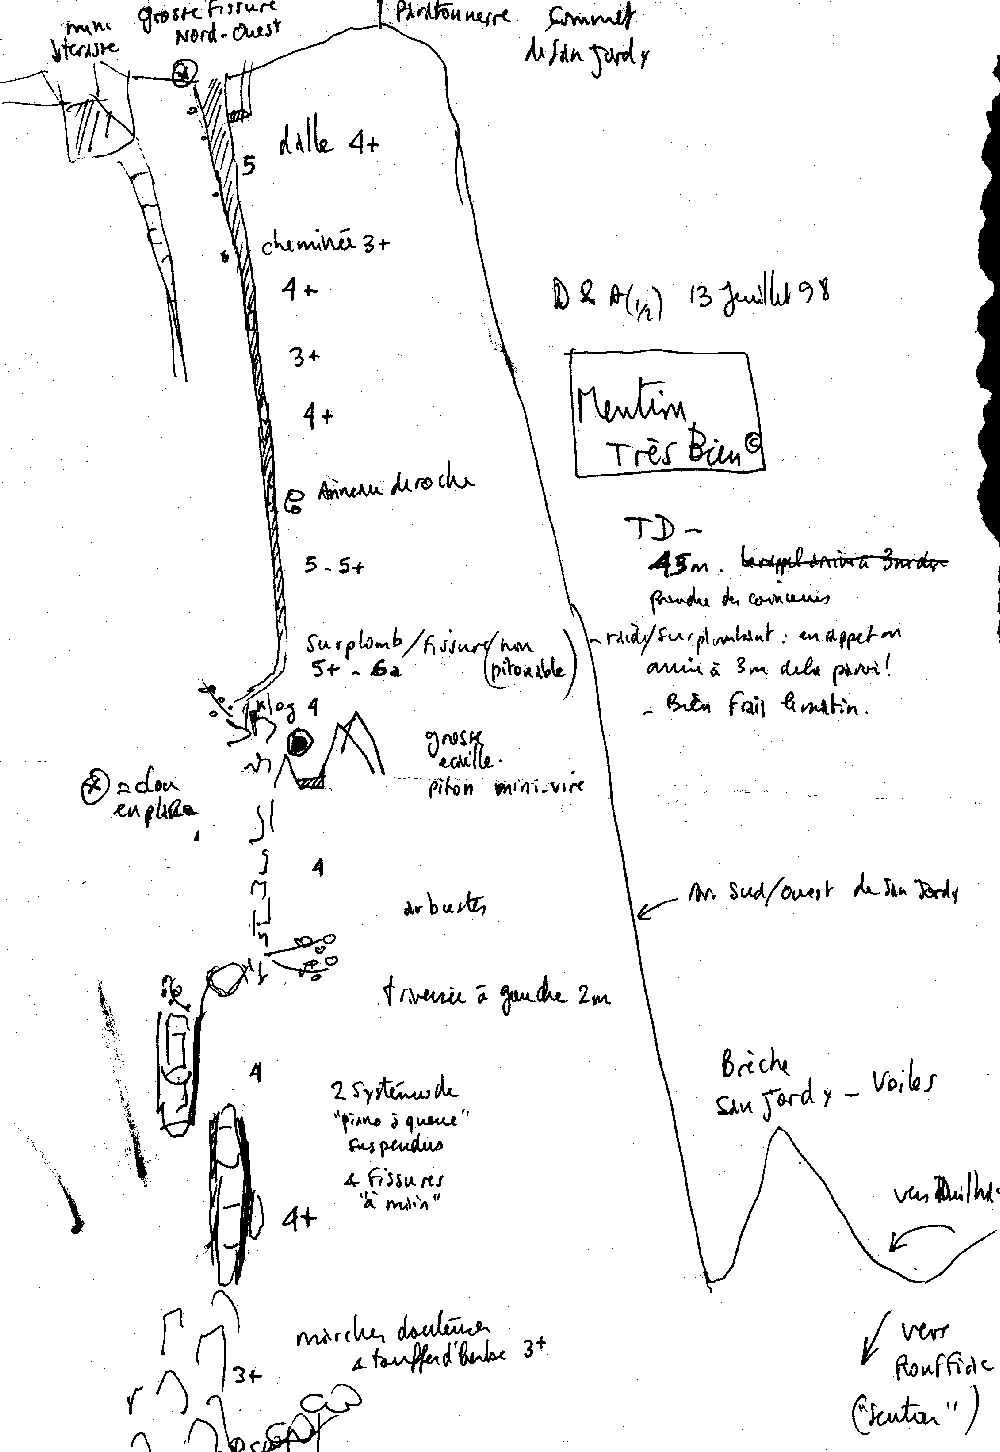 mini
terrasse
grosse fissure
Nord-Ouest
Paratonnerre
Sommet
de San Jordy
dalle 4+
5
cheminée 3+
4+
3+
4+
Anneau de roche
5 - 5+
surplomb/fissure/non
5+ - 6a (pitonable)
4
grosse
écaille.
piton mini-vire
= clou
en place
4
arbustes
traversée à gauche 2m
4
2 systèmes de
"piano à queue"
suspendus
& fissures
"à main"
4+
marches douteuses
& touffes d'herbe 3+
3+
D & A (1/2) 13 Juillet 98
Mention
Très Bien ©
TD -
45m.
prendre des coinceurs
- raide/surplombant : en rappel on
arrive à 3m de la paroi!
- Bien frais le matin.
Sud/Ouest de San Jordy
Brèche
San Jordy - Voiles
vers
vers
Rouffiac
("sentier")